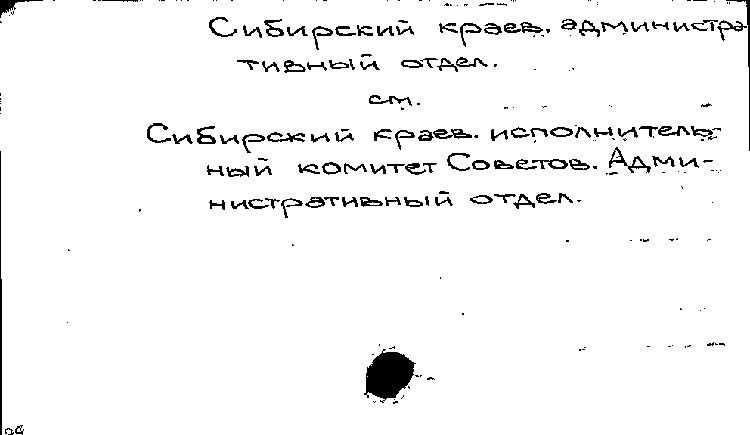 Сибирский краев. администра
тивный отдел.
см.
Сибирский краев. исполнитель-
ный комитет Советов. Адми-
нистративный отдел.